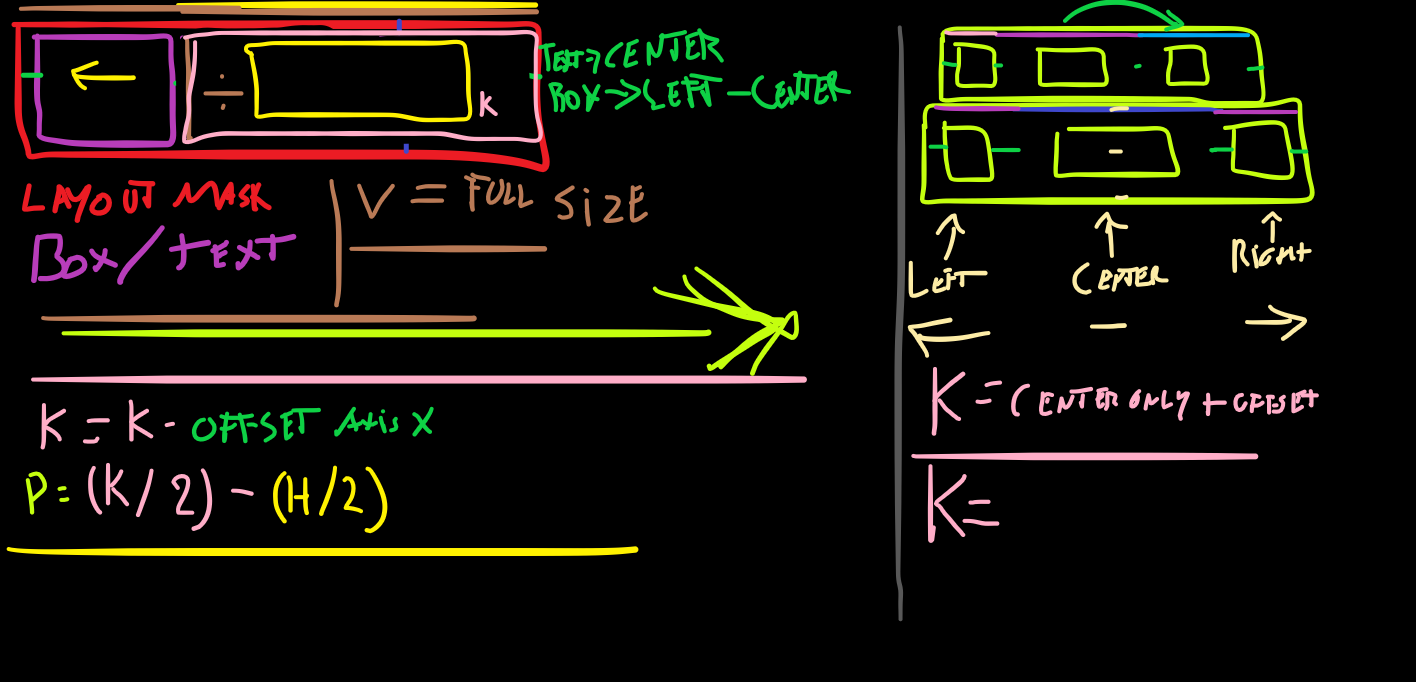 K
TEXT→CENTER
BOX→LEFT-CENTER
LAYOUT MASK
BOX/TEXT
V = FULL SIZE
K = K - OFFSET AXIS X
P = (K/2) - (H/2)
LEFT
CENTER
RIGHT
K = CENTER ONLY + OFFSET
K =